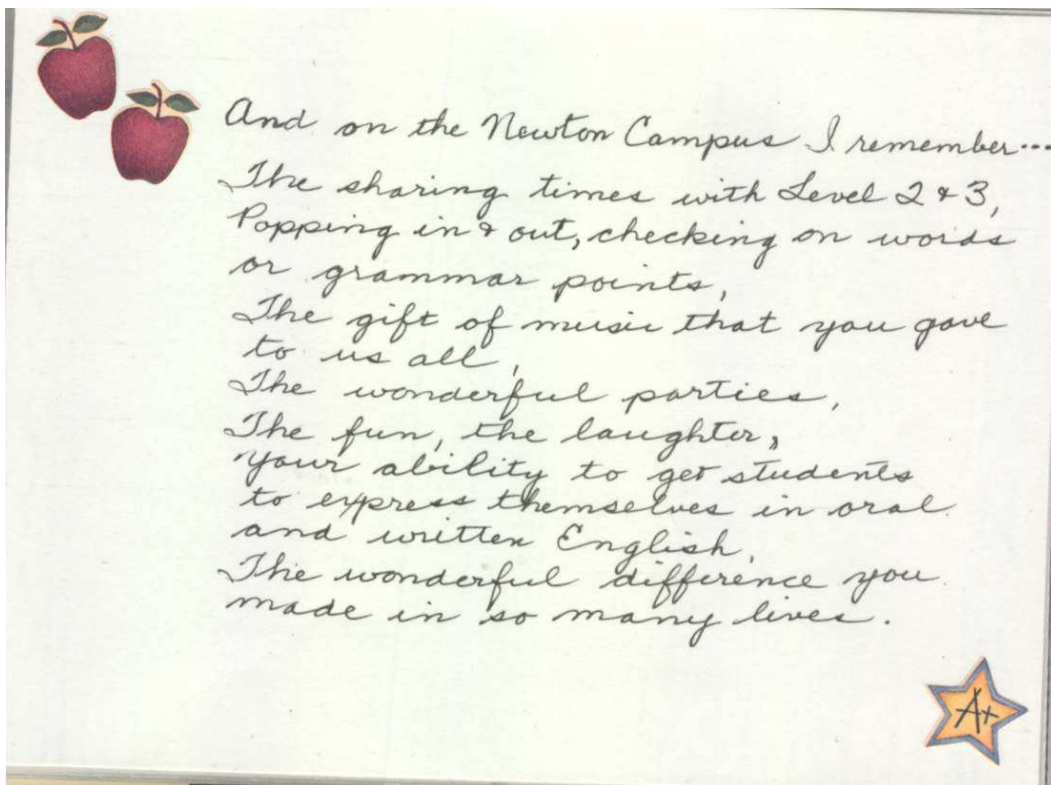 And on the Newton Campus I remember...
The sharing times with Level 2 & 3,
Popping in & out, checking on words
or grammar points,
The gift of music that you gave
to us all,
The wonderful parties,
The fun, the laughter,
Your ability to get students
to express themselves in oral
and written English,
The wonderful difference you
made in so many lives.
A+